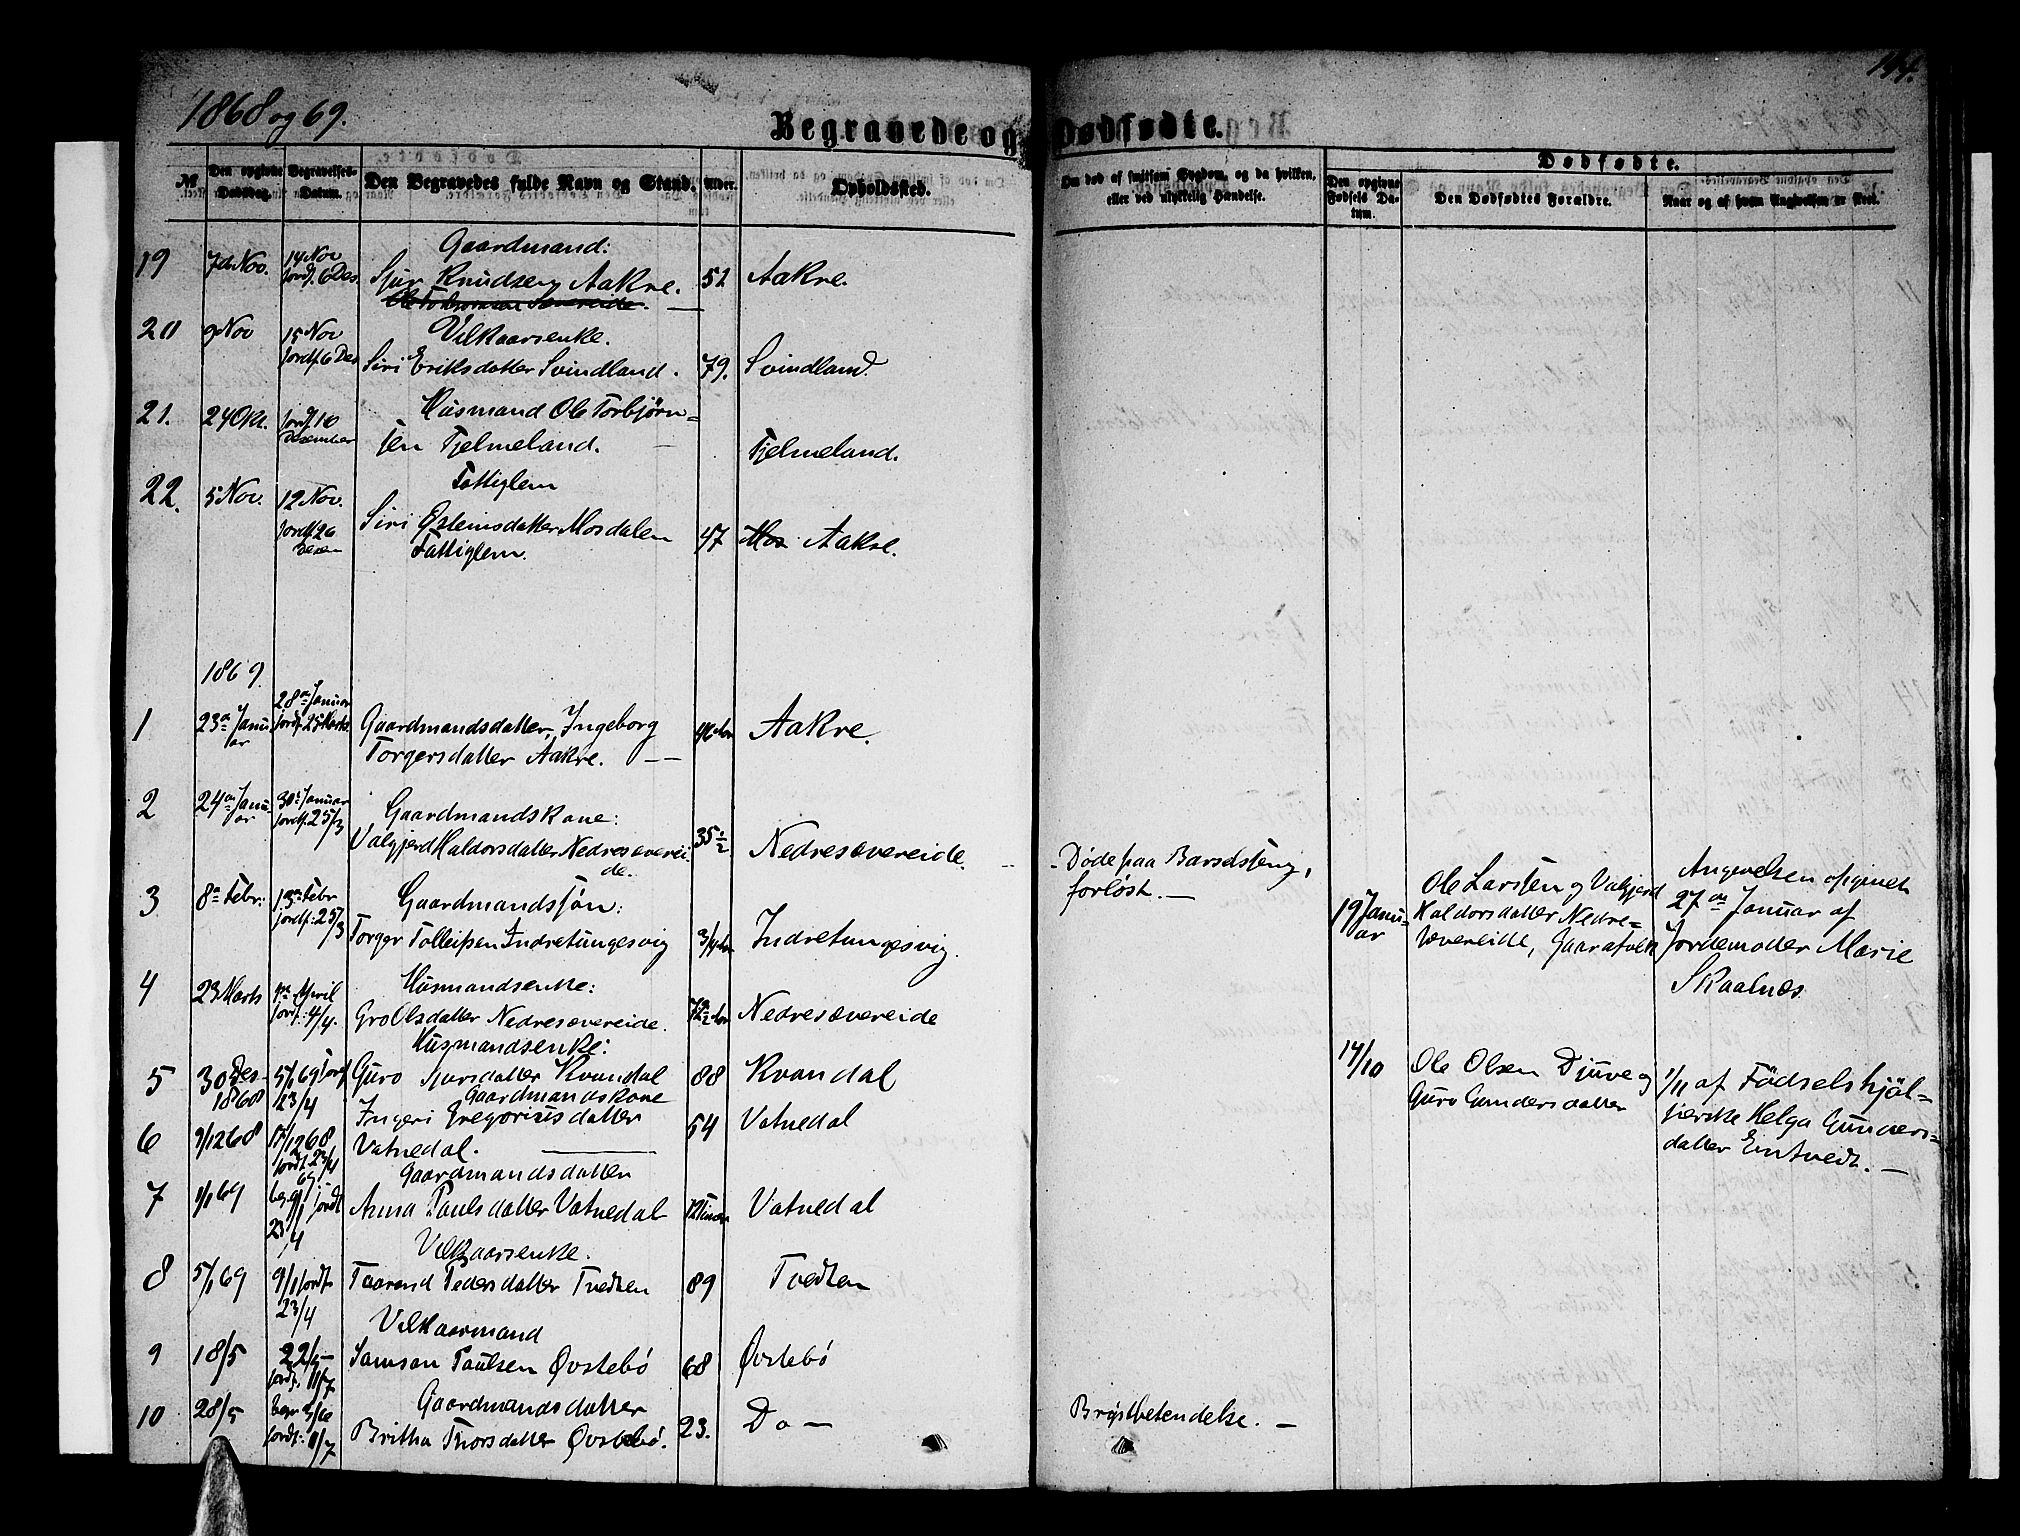 1868 og 69.
Begravede og Dødfødte.
144.
№
Den opgivne Dødsdag.
Begravelses-Datum.
Den Begravedes fulde Navn og Stand.
Alder.
Opholdssted.
Om død af smitsom Sygdom, og da hvilken, eller ved ulykkelig Hændelse.
Dødfødte.
Den opgivne Fødsels Datum.
Den Dødfødtes Forældre.
Naar og af hvem Angivelsen er skeet.
Gaardmand:
19 7de Nov. 14 Nov Sjur Knudsen Aakre. 52 Aakre.
jordf. 6 Des
20 9 Nov 15 Nov Vilkaarsenke.
jordf. 6 Des Siri Eriksdatter Svindland. 79. Svindland.
21. 24 Okt. jordf. 10 Husmand Ole Torbjørn=
Desember sen Fjelmeland. — Fjelmeland.
22. 5 Nov. 12 Nov. Fattiglem
jordf. 26 Siri Østeinsdatter Mosdalen 47 Mos Aakre.
Desem Fattiglem.
1869.
28de Januar
1 23de Janu= jordf. 25 Marts Gaardmandsdatter, Ingeborg Aakre.
ar Torgersdatter Aakre. —
2 24de Janu= 30te Januar Gaardmandskone:
ar jordf. 25/3 Valgjerd Haldorsdatter Nedresævereide. 35 1/2 Nedresævereide. — Døde paa Barselseng,
forløst. —
3 8de Febr. 13de Febr Gaardmandssøn:
jordf: 25/3 Torger Tolleifsen Indretungesvig Indretungesvig.
19 Janu=ar
Ole Larsen og Valgjerd
Haldorsdatter Nedre=
sævereide, Gaardfolk
Angivelsen opgivet
27de Januar af
Jordemoder Marie
Skaalnæs
4 23 Marts April Husmandsenke:
jordf. 4/4. Gro Olsdatter Nedresævereide. Nedresævereide
Husmandsenke:
5 30 Des. 5/1 69 jordf. Guro Sjursdatter Kvandal 88 Kvandal
1868 23/4 Gaardmandskone
6 9/12 68 17/12 68 Ingeri Gregoriusdatter 54 Vatnedal
jordf. 23/4 69 Vatnedal. —
14/10
Ole Olsen Djuve og
Guro Gundersdatter
1/11 af Fødselshjæl=
perske Helga Gunners=
datter Eintvedt. —
Gaardmandsdatter
7 1/1 69 beg. 9/1 jordf 23/4 Anna Paulsdatter Vatnedal 12 Timer Vatnedal
Vilkaarsenke.
8 5/1 69 9/1 jordf. Taarand Pedersdatter Tvedten 89 Tvedten
23/4
Vilkaarmand
9 18/5 22/5 — Samson Paulsen Øvstebø 68 Øvstebø
jordf. 11/7
Gaardmandsdatter
10 28/5 begr 5/6 Britha Thorsdatter Øvstebø. 23. Do — Brystbetendelse. —
jordf: 11/7